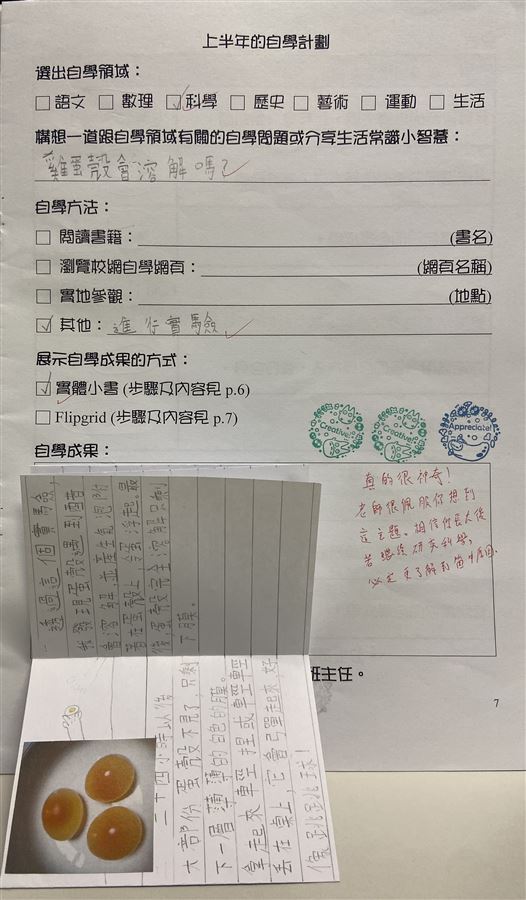 上半年的自學計劃
選出自學領域：
語文 數理 科學 歷史 藝術 運動 生活
構想一道跟自學領域有關的自學問題或分享生活常識小智慧：
雞蛋殼會溶解嗎？
自學方法：
閱讀書籍：(書名)
瀏覽校網自學網頁：(網頁名稱)
實地參觀：(地點)
其他：進行實驗
展示自學成果的方式：
實體小書 (步驟及內容見 p.6)
Flipgrid (步驟及內容見 p.7)
Creative! Creative! Appreciate!
自學成果：
真的很神奇！
老師很佩服你想到
這主題。相信你長大後
若繼續研究科學，
必定更了解到箇中原因。
透過這個實驗，
我發現蛋殼遇到醋
會溶解，並產生氣泡附
著在蛋殼上，蛋浮起。最
後，蛋殼完全溶解只剩
下膜。
班主任。
二十四小時以後
大部份蛋殼不見了，只剩
下一層薄薄的白色的膜。
拿起來輕輕捏或輕輕
丟在桌上，它會彈起來，好
像跳跳球！
7